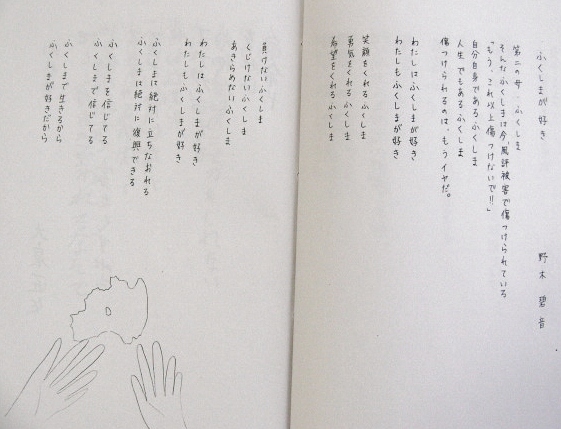 ふくしまが 好き
野木 碧音
第二の母、ふくしま
そんなふくしまは今、風評被害で傷つけられている
「もう、これ以上傷つけないで!!」
自分自身であるふくしま
人生でもあるふくしま
傷つけられるのは、もうイヤだ。
わたしはふくしまが好き
わたしもふくしまが好き
笑顔をくれるふくしま
勇気をくれるふくしま
希望をくれるふくしま
負けないふくしま
くじけないふくしま
あきらめないふくしま
わたしはふくしまが好き
わたしもふくしまが好き
ふくしまは絶対に立ちなおれる
ふくしまは絶対に復興できる
ふくしまを信じてる
ふくしまで信じてる
ふくしまで生きるから
ふくしまが好きだから